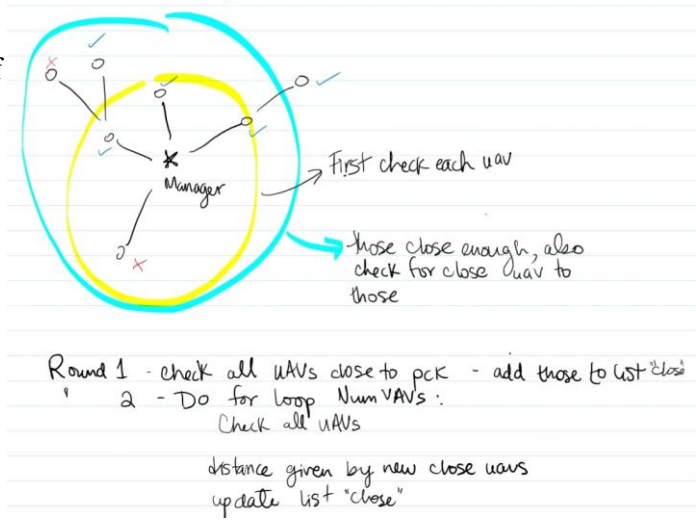 f
Manager
First check each uav
those close enough, also
check for close uav to
those
Round 1 - check all UAVs close to pck - add those to list "close"
" 2 - Do for loop Num UAV's :
Check all UAVs
distance given by new close uavs
update list "close"